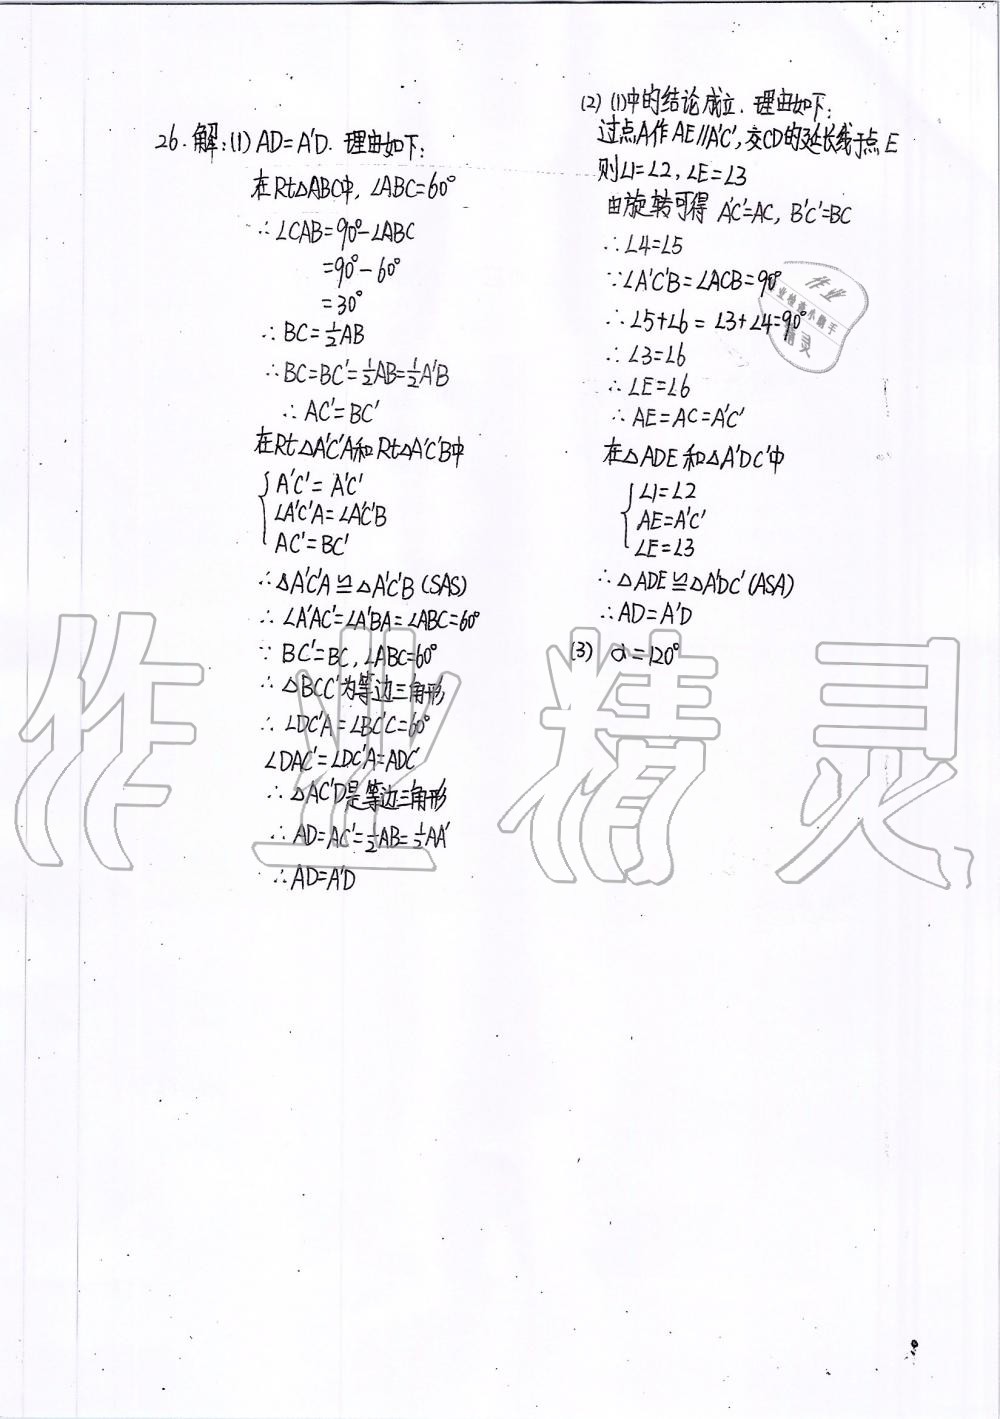 26.解:(1) AD=A'D. 理由如下:
在Rt△ABC中, ∠ABC=60°
∴∠CAB=90°-∠ABC
=90°-60°
=30°
∴BC=½AB
∴BC=BC'=½AB=½A'B
∴AC'=BC'
在Rt△A'C'A和Rt△A'C'B中
{A'C'=A'C'
∠A'C'A=∠A'C'B
AC'=BC'
∴△A'C'A≌△A'C'B(SAS)
∴∠A'AC'=∠A'BA=∠ABC=60°
∵BC'=BC,∠ABC=60°
∴△BCC'为等边三角形
∴∠DC'A=∠BC'C=60°
∠DAC'=∠DC'A=ADC'
∴△AC'D是等边三角形
∴AD=AC'=½AB=½AA'
∴AD=A'D
(2) (1)中的结论成立. 理由如下:
过点A作AE//A'C',交CD的延长线于点E
则∠1=∠2,∠E=∠3
由旋转可得 A'C'=AC, B'C'=BC
∴∠4=∠5
∵∠A'C'B=∠ACB=90°
∴∠5+∠6=∠3+∠4=90°
∴∠3=∠6
∴∠E=∠6
∴AE=AC=A'C'
在△ADE和△A'DC'中
{∠1=∠2
AE=A'C'
∠E=∠3
∴△ADE≌△A'DC'(ASA)
∴AD=A'D
(3) α=120°
作业
业检查小助手
精灵
作业精灵